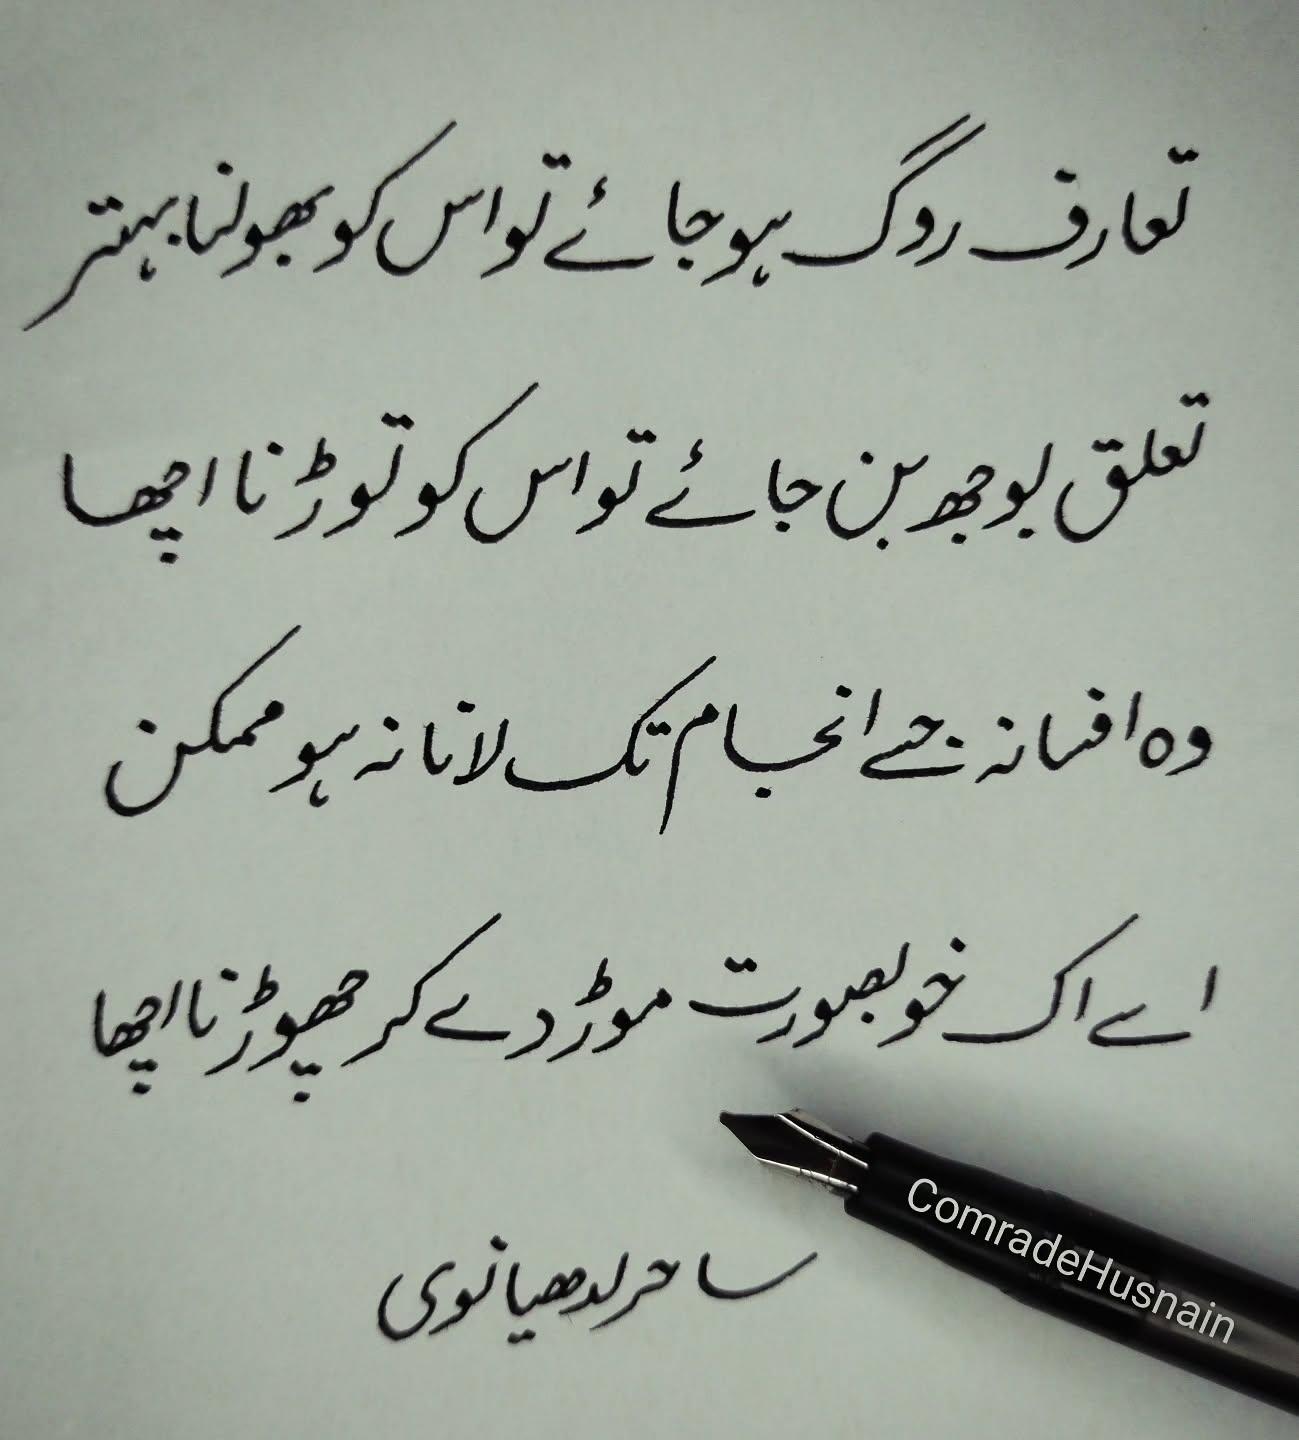 تعارف روگ ہو جائے تو اس کو بھولنا بہتر
تعلق بوجھ بن جائے تو اس کو توڑنا اچھا
وہ افسانہ جسے انجام تک لانا نہ ہو ممکن
اسے اک خوبصورت موڑ دے کر چھوڑنا اچھا
ساحر لدھیانوی
ComradeHusnain